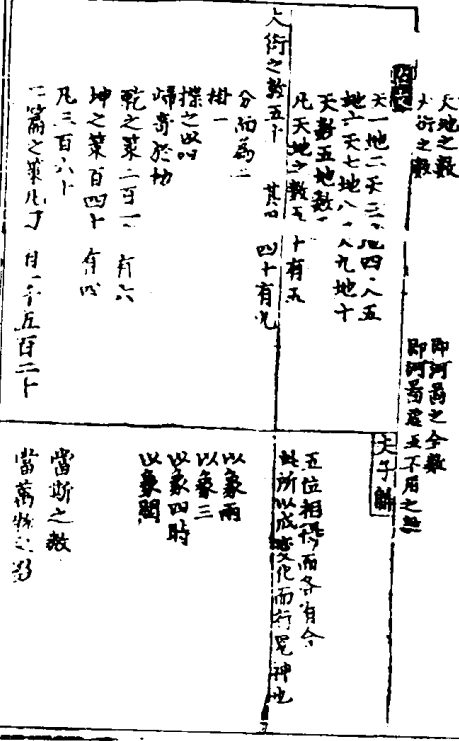 天地之數
即河啚之全數
大衍之數
即河啚虛五不用之
天一地二天三地四天五
地六天七地八天九地十
天數五地數
凡天地之數五十有五
大衍之數五十 其 四十有九
分而為二
掛一
揲之以四
歸奇於扐
乾之策二百一 有六
坤之策百四十有四
凡三百六十
二篇之策凡 一千五百二十
夫子
五位相得而各有合
此所以成变化而行鬼神也
以象兩
以象三
以象四時
以象閏
當斯之數
當萬物之